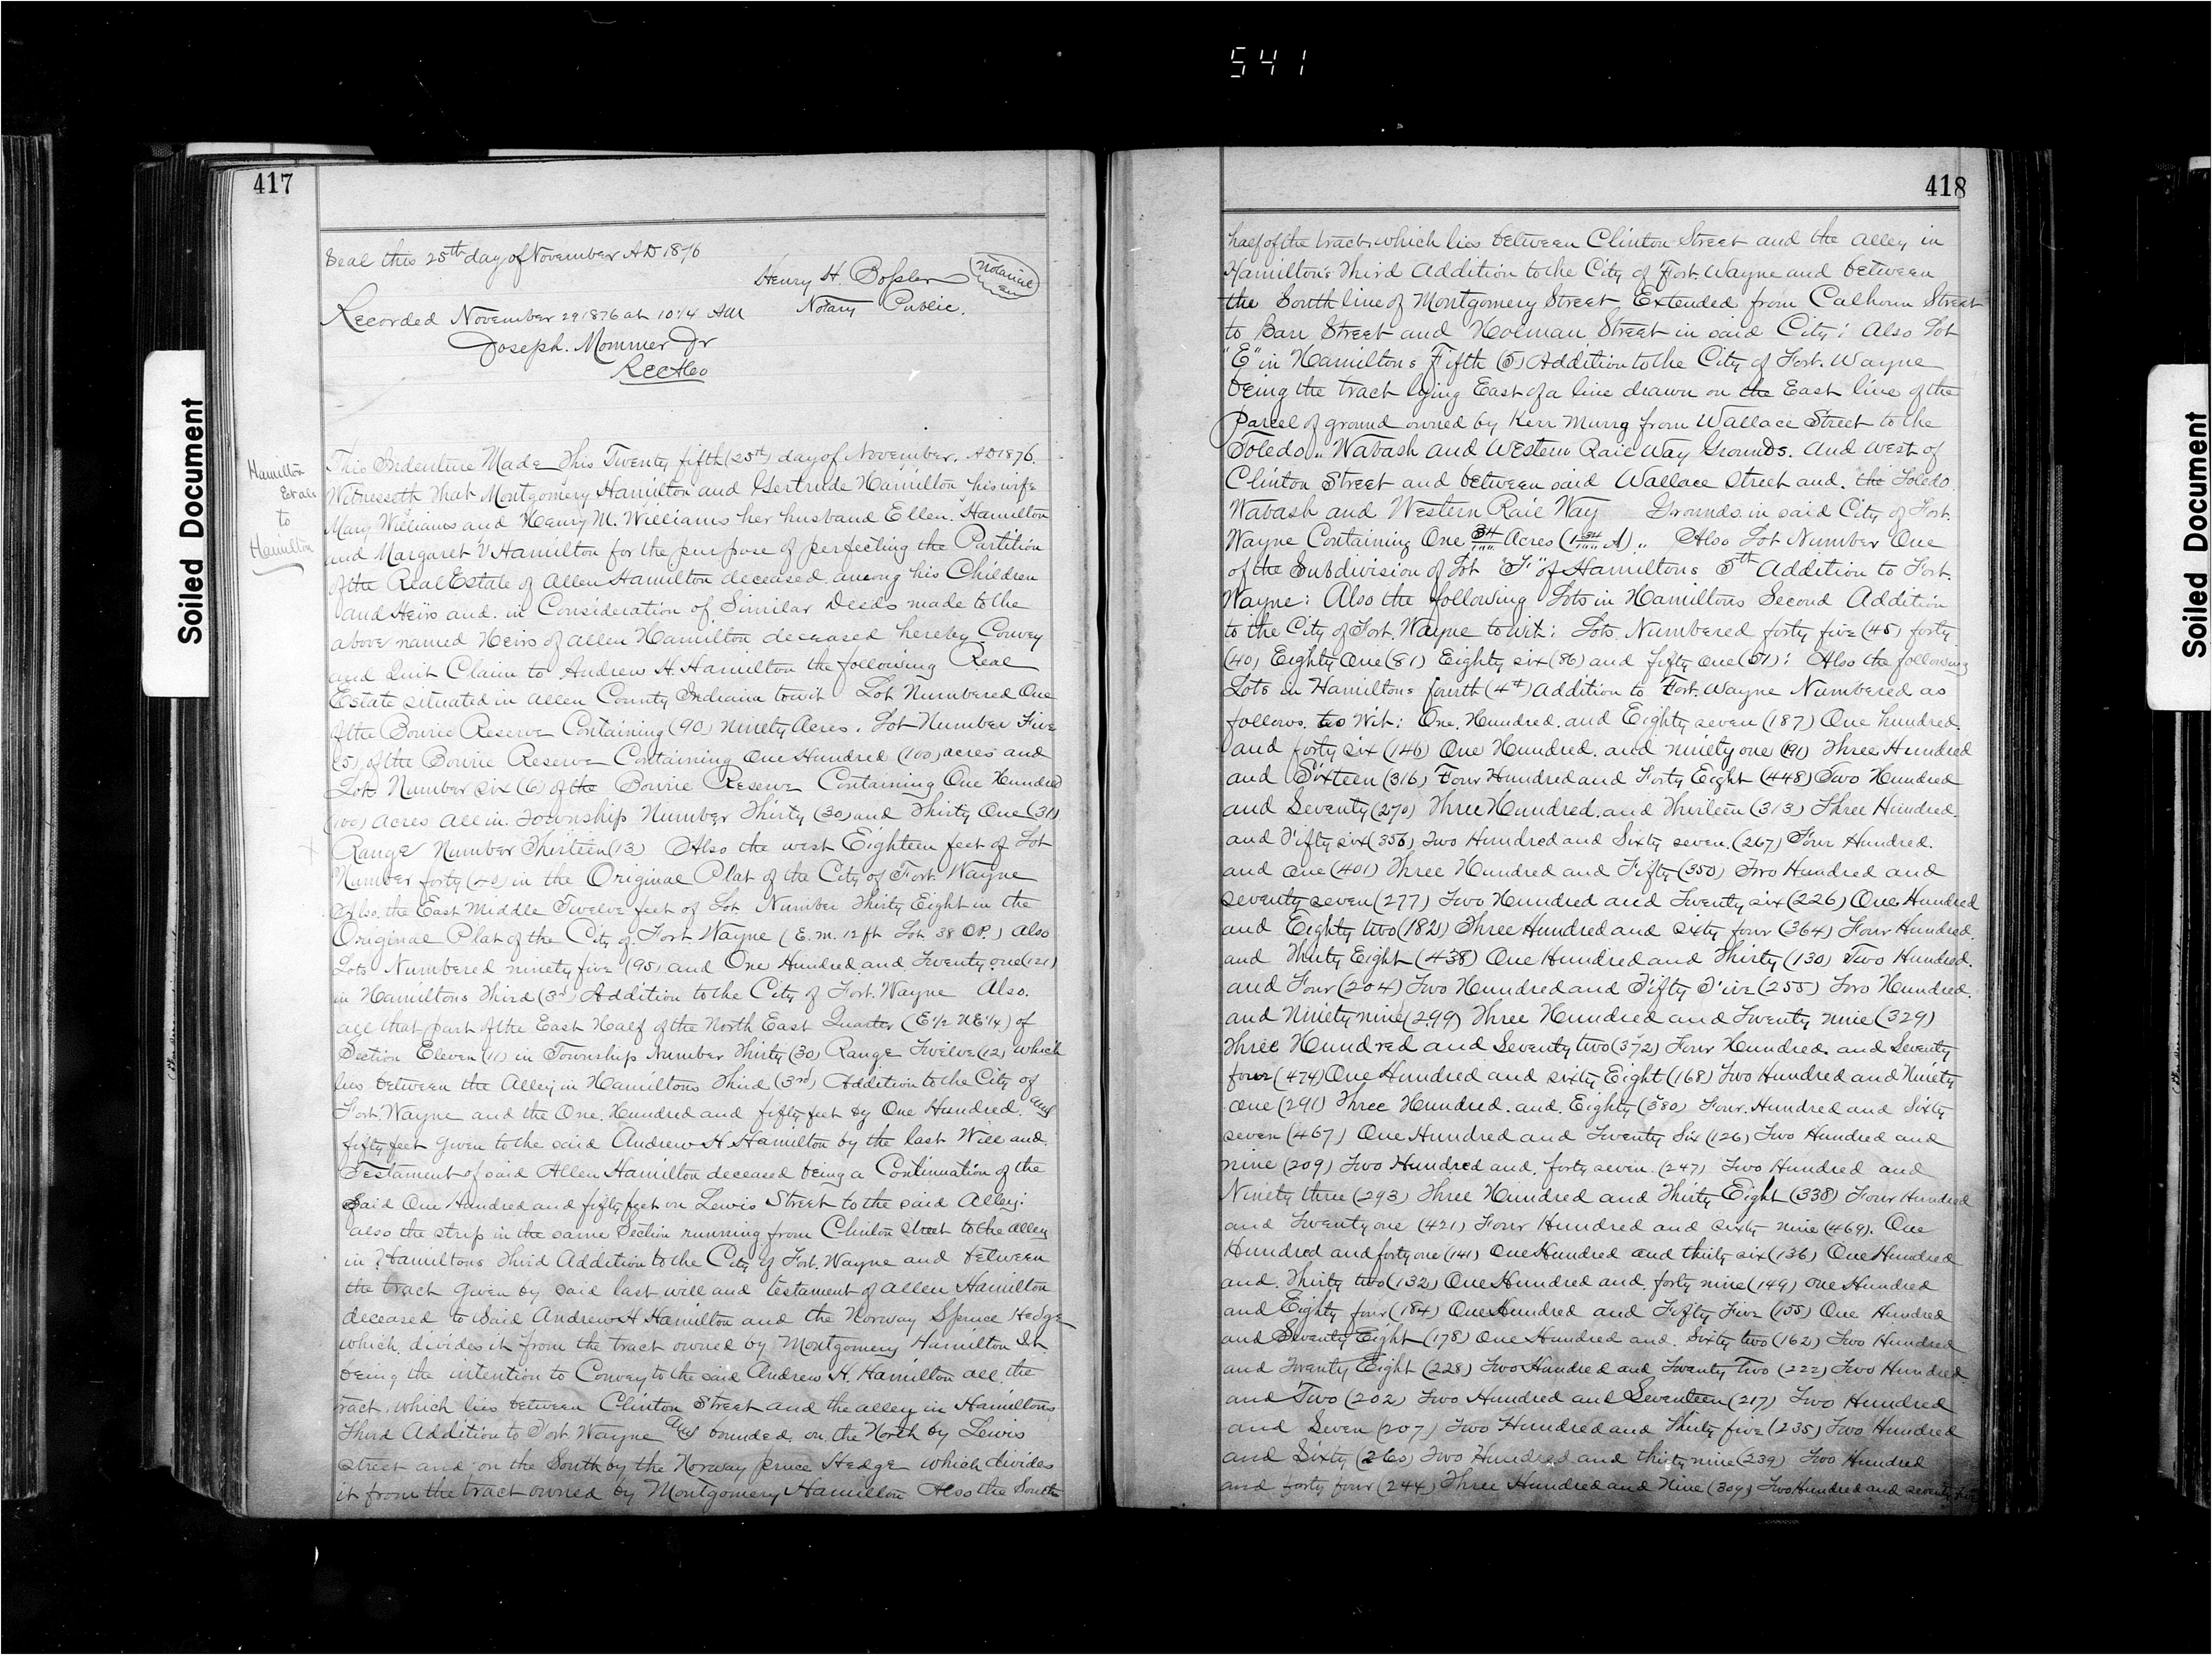 541
417
Seal this 25th day of November AD 1876
Henry H. Bossler
Notarial
Seal
Notary Public.
Recorded November 29 1876 at 10 1/4 AM
Joseph. Mommer Jr
Rec Aco
Soiled Document
Hamilton
Et als
to
Hamilton
This Indenture Made This Twenty fifth (25th) day of November. AD 1876.
Witnesseth That Montgomery Hamilton and Gertrude Hamilton his wife
Mary Williams and Henry M. Williams her husband Ellen. Hamilton
and Margaret V Hamilton for the purpose of perfecting the Partition
of the Real Estate of Allen Hamilton deceased. among his Children
and Heirs and. in Consideration of Similar Deeds made to the
above named Heirs of Allen Hamilton deceased hereby Convey
and Quit Claim to Andrew H. Hamilton the following Real
Estate situated in Allen County Indiana towit Lot Numbered One
of the Bourie Reserve Containing (90) Ninety Acres. Lot Number Five
(5) of the Bourie Reserve Containing One Hundred (100) acres and
Lot Number six (6) of the Bourie Reserve Containing One Hundred
(100) acres all in. Township Number Thirty (30) and Thirty One (31)
Range Number Thirteen (13) Also the west Eighteen feet of Lot
Number forty (40) in the Original Plat of the City of Fort. Wayne
Also. the East Middle Twelve feet of Lot. Number Thirty Eight in the
Original Plat of the City of Fort Wayne (E. m. 12 ft Lot 38 O.P.) also
Lots Numbered ninety five (95) and One Hundred and Twenty one (121)
in Hamiltons Third (3rd) Addition to the City of Fort. Wayne Also.
all that part of the East Half of the North East Quarter (E 1/2 N E 1/4) of
Section Eleven (11) in Township Number Thirty (30) Range Twelve (12) which
lies between the Alley in Hamiltons Third (3rd) Addition to the City of
Fort. Wayne and the One. Hundred and fifty feet by One Hundred. and
fifty feet given to the said Andrew H Hamilton by the last Will and.
Testament of said Allen Hamilton deceased being a Continuation of the
Said One Hundred and fifty feet on Lewis Street to the said Alley:
also the strip in the same Section running from Clinton street to the alley
in Hamiltons Third Addition to the City of Fort. Wayne and between
the tract given by said last will and testament of Allen Hamilton
deceased to said Andrew H Hamilton and the Norway Spruce Hedge
which. divides it from the tract owned by Montgomery Hamilton It
being the intention to Convey to the said Andrew H. Hamilton all. the
tract. which lies between Clinton Street and the alley in Hamiltons
Third Addition to Fort Wayne and bounded. on the North by Lewis
Street and on the South by the Norway pruce Hedge which divides
it from the tract owned by Montgomery Hamilton Also the South
418
half of the tract. which lies between Clinton Street and the alley in
Hamiltons Third Addition to the City of Fort. Wayne and between
the South line of Montgomery Street Extended from Calhoun Street
to Barr Street and Holman Street in said City: Also Lot
"E" in Hamiltons Fifth (5) Addition to the City of Fort. Wayne
being the tract lying East of a line drawn on the East line of the
Parcel of ground owned by Kerr Murrg from Wallace Street to the
Toledo.. Wabash and Western Rail Way Grounds. and West of
Clinton Street and between said Wallace Street and. the Toledo.
Wabash and Western Rail Way Grounds. in said City of Fort.
Wayne Containing One 34/100 Acres (1 34/100 A).. Also Lot Number One
of the Subdivision of Lot "F" of Hamiltons 5th Addition to Fort.
Wayne: Also the following Lots in Hamiltons Second Addition
to the City of Fort. Wayne to wit: Lots. Numbered forty five (45) forty
(40) Eighty One (81) Eighty six (86) and fifty one (51): Also the following
Lots in Hamiltons fourth (4th) Addition to Fort. Wayne Numbered as
follows. to Wit: One. Hundred. and Eighty seven (187) One hundred.
and forty six (146) One Hundred. and ninety one (191) Three Hundred
and Sixteen (316) Four Hundred and Forty Eight (448) Two Hundred
and Seventy (270) Three Hundred. and Thirteen (313) Three Hundred.
and Fifty six (356) Two Hundred and Sixty seven. (267) Four Hundred.
and one (401) Three Hundred and Fifty (350) Two Hundred and
seventy seven (277) Two Hundred and Twenty six (226) One Hundred
and Eighty two (182) Three Hundred and sixty four (364) Four Hundred.
and Thirty Eight (438) One Hundred and Thirty (130) Two Hundred.
and Four (204) Two Hundred and Fifty Five (255) Two Hundred.
and Ninety nine (299) Three Hundred and Twenty nine (329)
Three Hundred and Seventy two (372) Four Hundred. and Seventy
four (474) One Hundred and sixty Eight (168) Two Hundred and Ninety
one (291) Three Hundred. and. Eighty (380) Four. Hundred and Sixty
seven (467) One Hundred and Twenty Six (126) Two Hundred and
nine (209) Two Hundred and. forty seven. (247) Two Hundred and
Ninety three (293) Three Hundred and Thirty Eight (338) Four Hundred
and Twenty one (421) Four Hundred and sixty nine (469). One
Hundred and forty one (141) One Hundred and thirty six (136) One Hundred
and. Thirty two (132) One Hundred and. forty nine (149) one Hundred
and Eighty four (184) One Hundred and Fifty Five (155) One Hundred
and Seventy Eight (178) One Hundred and. Sixty two (162) Two Hundred
and Twenty Eight (228) Two Hundred and Twenty Two (222) Two Hundred.
and Two (202) Two Hundred and Seventeen (217) Two Hundred
and Seven (207) Two Hundred and Thirty five (235) Two Hundred
and Sixty (260) Two Hundred and thirty nine (239) Two Hundred
and forty four (244) Three Hundred and Nine (309) Two Hundred and seventy
Soiled Document